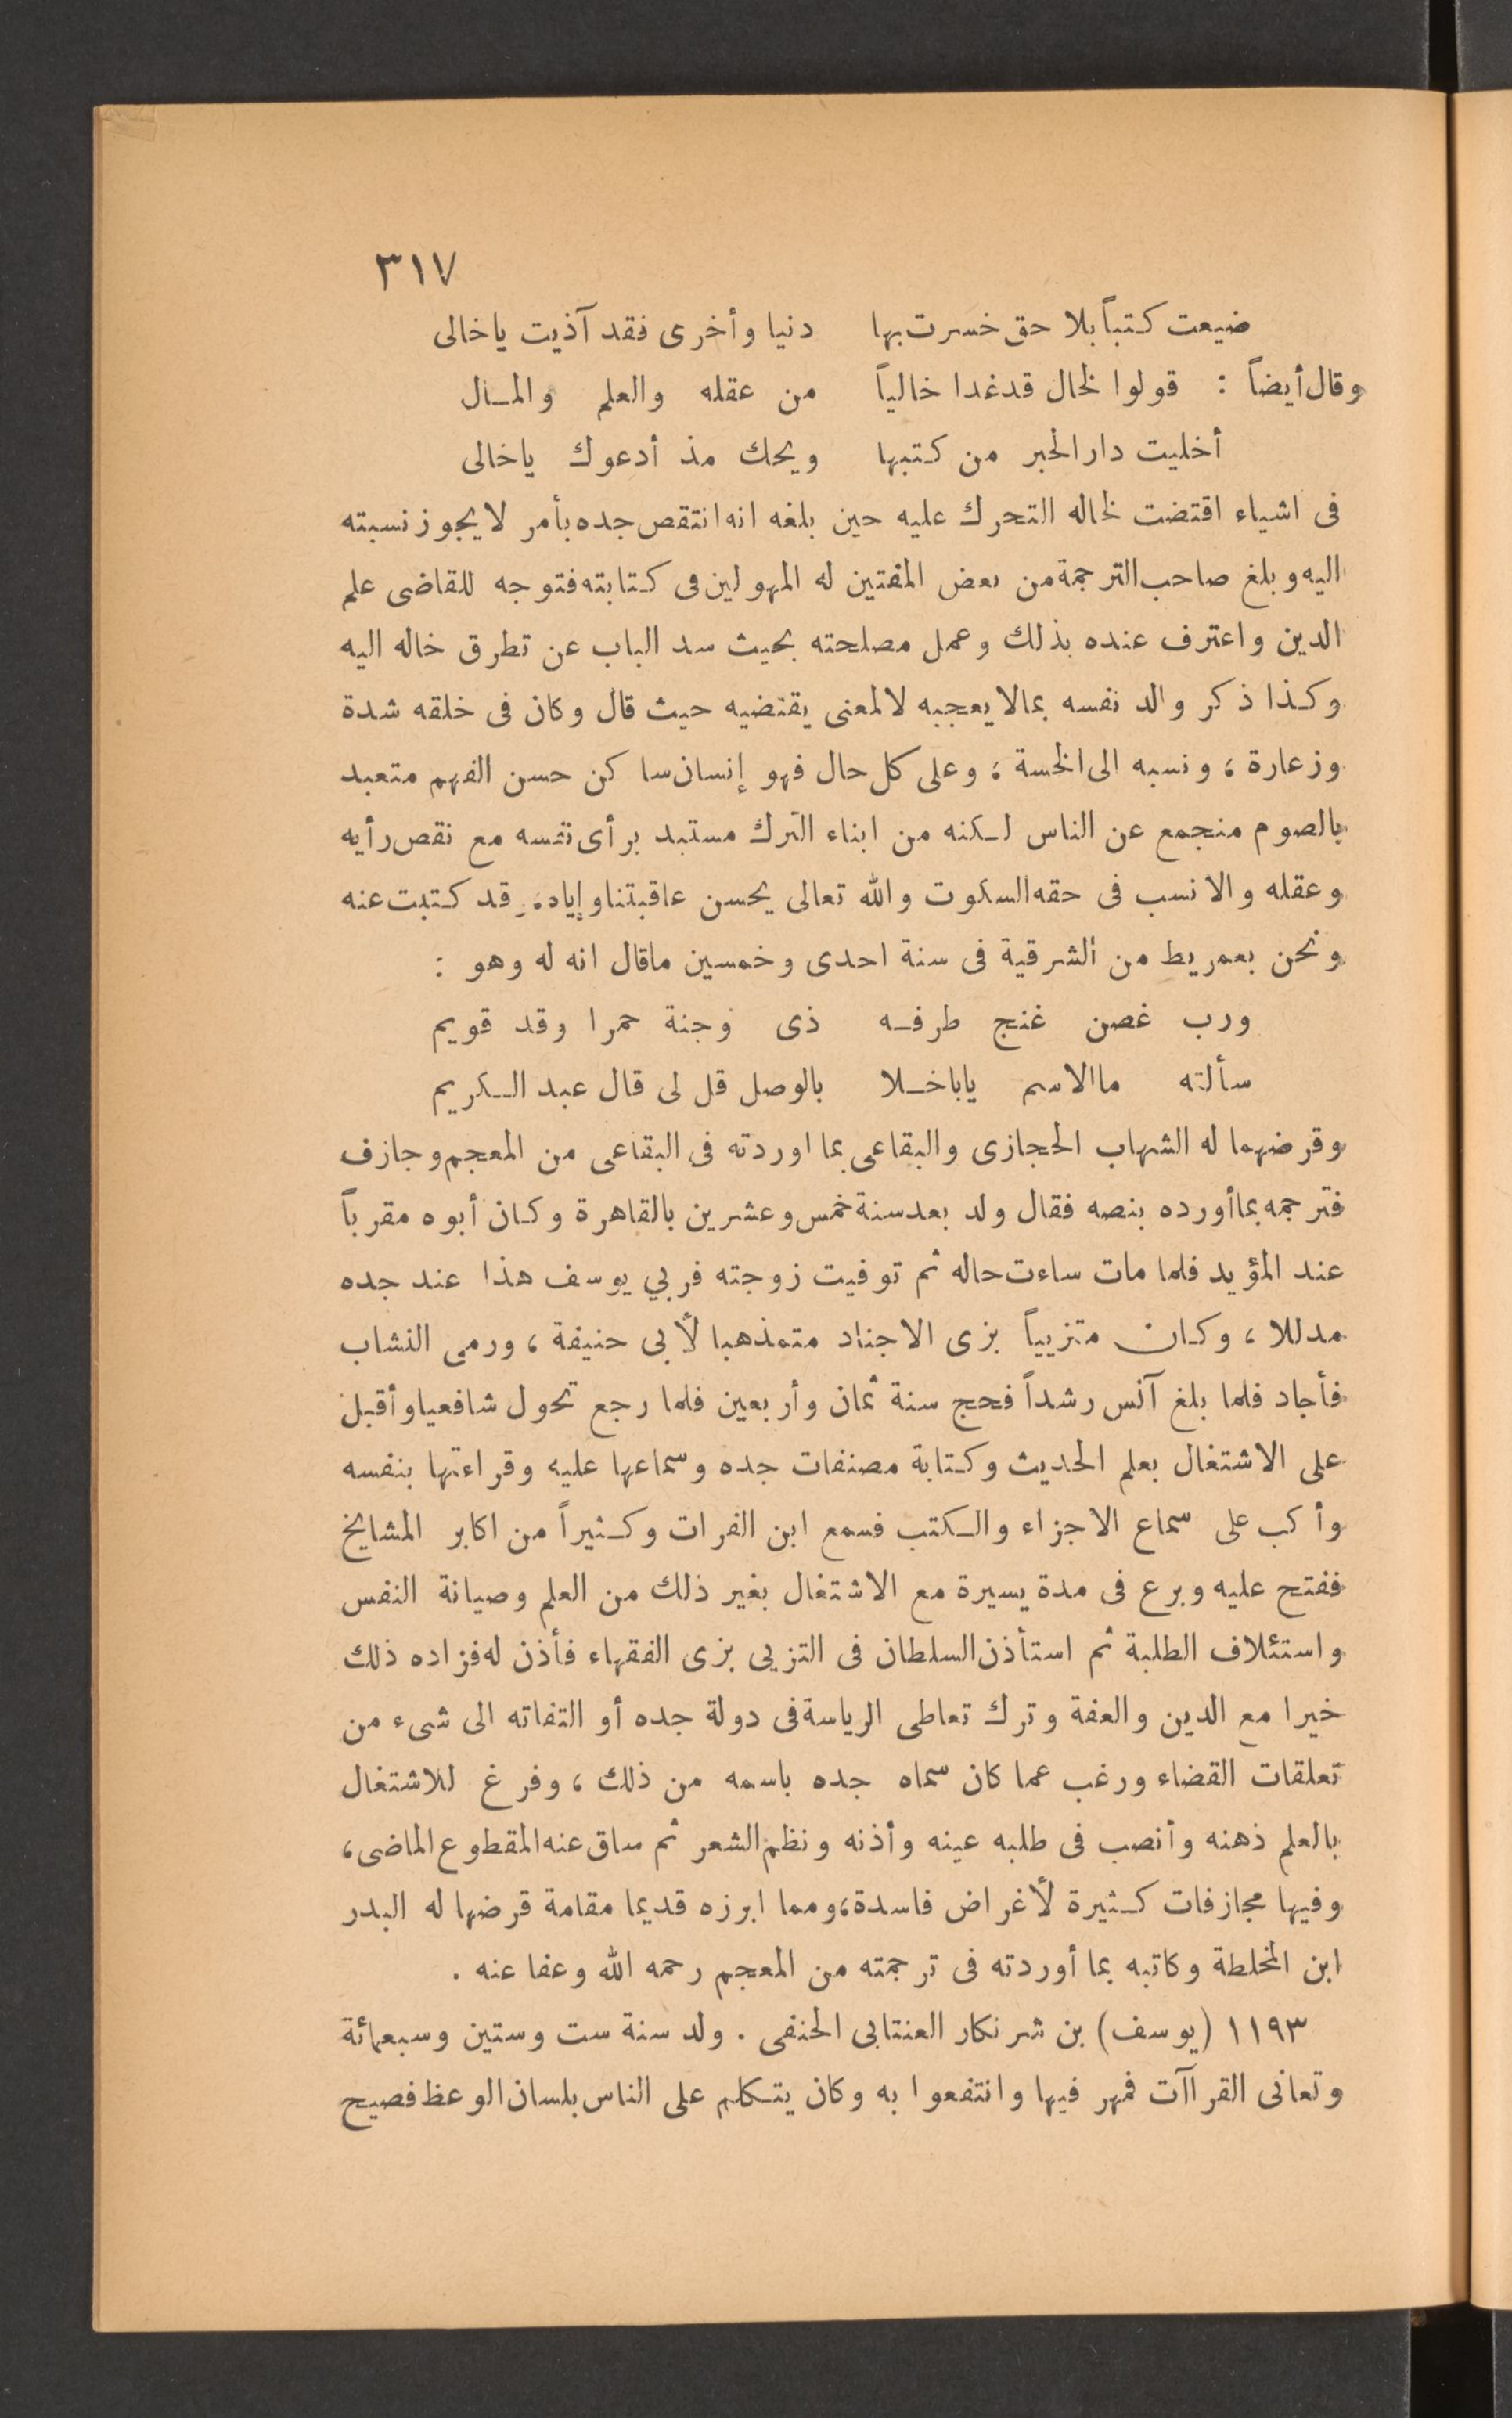 ٣١٧
ضيعت كتباً بلا حق خسرت بها دنيا وأخرى فقد آذيت ياخالى
وقال أيضاً : قولوا لخال قدغدا خالياً من عقله والعلم والمـال
أخليت دار الحبر من كتبها ويحك مذ أدعوك ياخالى
فى اشياء اقتضت لخاله التحرك عليه حين بلغه انه انتقص جده بأمر لا يجوز نسبته
اليه وبلغ صاحب الترجمة من بعض المفتين له المهولين فى كتابته فتوجه للقاضى علم
الدين واعترف عنده بذلك وعمل مصلحته بحيث سد الباب عن تطرق خاله اليه
وكذا ذكر والد نفسه بمالا يعجبه لالمعنى يقتضيه حيث قال وكان فى خلقه شدة
وزعارة ؛ ونسبه الى الخسة ؛ وعلى كل حال فهو إنسان ساكن حسن الفهم متعبد
بالصوم منجمع عن الناس لـكنه من ابناء الترك مستبد برأى نفسه مع نقص رأيه
وعقله والانسب فى حقه السكوت والله تعالى يحسن عاقبتنا وإياه، وقد كتبت عنه
ونحن بعمريط من الشرقية فى سنة احدى وخمسين ماقال انه له وهو :
ورب غصن غنج طرفـه ذى وجنة حمرا وقد قويم
سألته ماالاسم ياباخـلا بالوصل قل لى قال عبد الـكريم
وقرضهما له الشهاب الحجازى والبقاعى بما اوردته فى البقاعى من المعجم وجازف
فترجمه بما أورده بنصه فقال ولد بعد سنة خمس وعشرين بالقاهرة وكان أبوه مقرباً
عند المؤيد فلما مات ساءت حاله ثم توفيت زوجته فربي يوسف هذا عند جده
مدللا ، وكان متزيياً بزى الاجناد متمذهبا لأبى حنيفة ، ورمى النشاب
فأجاد فلما بلغ آنس رشداً فحج سنة ثمان وأربعين فلما رجع تحول شافعيا وأقبل
على الاشتغال بعلم الحديث وكتابة مصنفات جده وسماعها عليه وقراءتها بنفسه
وأكب على سماع الاجزاء والـكتب فسمع ابن الفرات وكـثيراً من اكابر المشايخ
ففتح عليه وبرع فى مدة يسيرة مع الاشتغال بغير ذلك من العلم وصيانة النفس
واستئلاف الطلبة ثم استأذن السلطان فى التزيى بزى الفقهاء فأذن له فزاده ذلك
خيرا مع الدين والعفة وترك تعاطى الرياسة فى دولة جده أو التفاته الى شىء من
تعلقات القضاء ورغب عما كان سماه جده باسمه من ذلك ، وفرغ للاشتغال
بالعلم ذهنه وأنصب فى طلبه عينه وأذنه ونظم الشعر ثم ساق عنه المقطوع الماضى ،
وفيها مجازفات كـثيرة لأغراض فاسدة، ومما ابرزه قديما مقامة قرضها له البدر
ابن المخلطة وكاتبه بما أوردته فى ترجمته من المعجم رحمه الله وعفا عنه .
١١٩٣ (يوسف) بن شرنكار العنتابى الحنفى . ولد سنة ست وستين وسبعمائة
وتعانى القراآت فمهر فيها وانتفعوا به وكان يتـكلم على الناس بلسان الوعظ فصيح